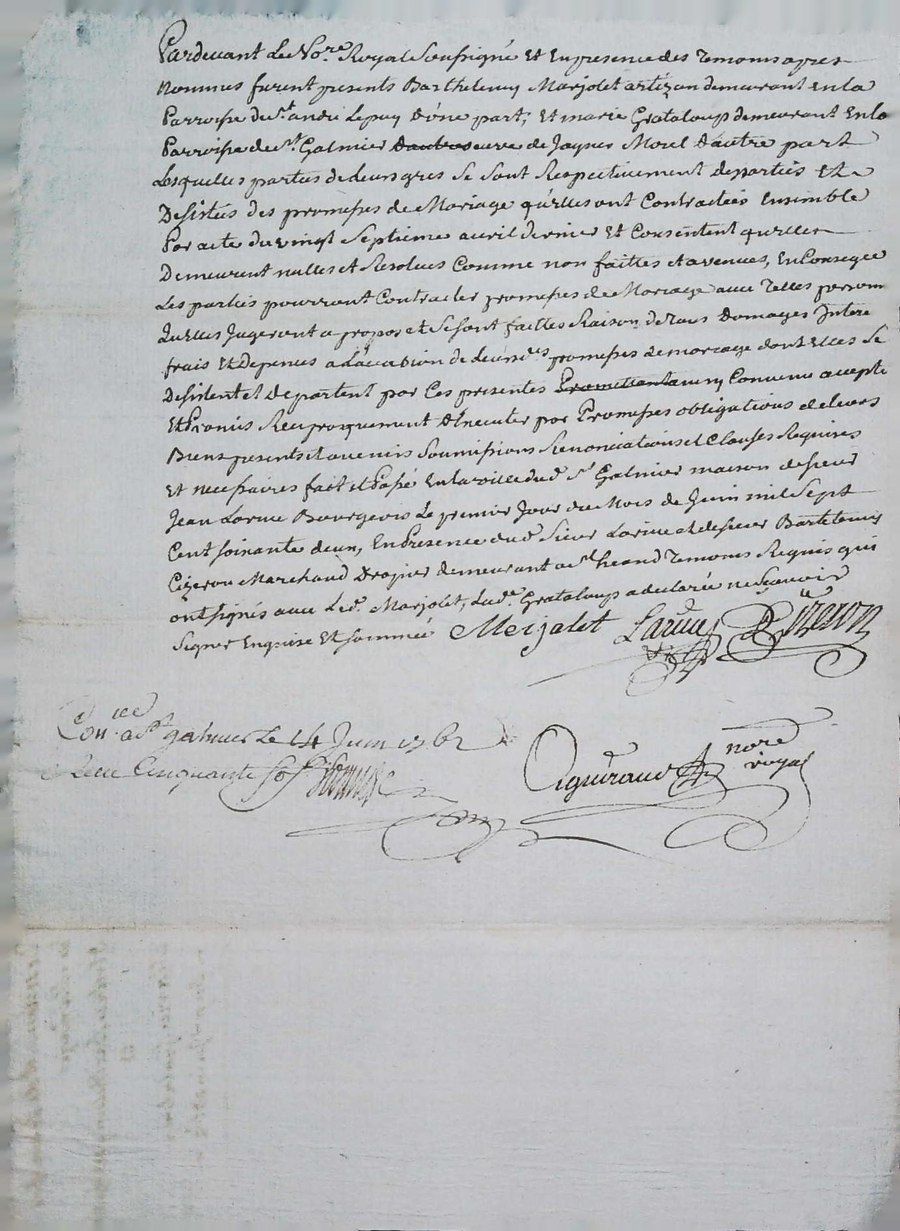 Pardevant Le No.re Royal Soussigné Et En presence des Temoins apres
nommes furent presents Barthelemy Marjolet artizan demeurant en la
Parroisse de St. andré Lepuy D'une part; Et marie Grataloup demeurant En la
Parroisse de St. Galmier veuve de Jaques Morel D'autre part
Lesquelles parties de Leurs gres Se Sont Respectivement departies Et
Desistées des promesses de Mariage qu'elles ont Contractées Ensemble
Par acte du vingt Septieme avril dernier Et Consentent qu'elles
Demeurent nulles et Resolues Comme non faittes et avenues, En Conseqce
Les parties pourront Contracter promesses de Mariage avec Telles personn
quelles Jugeront a propos et Se sont faittes Raison de Tous Domages Intere
frais Et Depenses a L'occasion de Leurs promesses de mariage dont Elles Se
Desistent et Departent par Ces presentes Convenu accepté
Et Promis Reciproquement D'Executer par Promesses obligations de Leurs
Biens presents et avenirs Soumissions Renonciations et Clauses Requises
Et necessaires fait et Passé En la ville dud. St. Galmier maison de Sieur
Jean Larue Bourgeois Le premier Jour du Mois de Juin mil Sept
Cent soixante deux, En Presence dud. Sieur Larue et de Sieur Bartelemy
Cizeron Marchand Drapier demeurant a St. heand Temoins Requis qui
ont signés avec Led. Marjolet, Lad. Grataloup a declarée ne Scavoir
Signer Enquise Et Sommée Merjalet Larue B Cizeron
Con.lée a St. galmier Le 14 Juin 1762
Recu Cinquante Sols
nore
royal